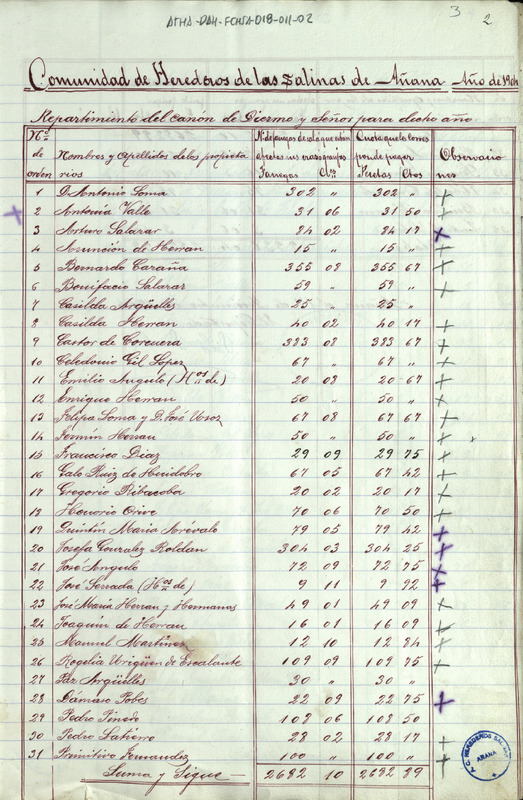 ATHA-DAH-FCHSA-018-011-02
3 2
Comunidad de Herederos de las Salinas de Añana Año de 1904
Repartimiento del canón de Diezmo y Señor para dicho año
Nos de orden Nombres y apellidos de los propietarios Fanegas Ctos Pesetas Ctos Observaciones
1 D. Antonio Soma 302 " 302 "
2 Antonia Valle 31 06 31 50
3 Arturo Salazar 84 02 84 17
4 Asunción de Herran 15 " 15 "
5 Bernardo Caraña 255 08 255 67
6 Bonifacio Salazar 59 " 59 "
7 Casilda Argüelles 25 " 25 "
8 Casilda Herran 40 02 40 17
9 Castor de Corcuera 383 08 383 67
10 Celedonio Gil López 67 " 67 "
11 Emilio Angulo (Hos de) 20 08 20 67
12 Enrique Herran 50 " 50 "
13 Felipa Soma y D. José 67 08 67 67
14 Fermín Herran 50 " 50 "
15 Francisco Diaz 29 09 29 75
16 Galo Ruiz de Huidobro 67 05 67 42
17 Gregorio Ribacoba 20 02 20 17
18 Honorio Orive 70 06 70 50
19 Quintín Maria Arévalo 79 05 79 42
20 Josefa Gonzalez Roldan 304 03 304 25
21 José Angulo 72 09 72 75
22 José Serrada (Hos de) 9 11 9 92
23 José Maria Herran y Hermanas 49 01 49 09
24 Joaquin de Herran 16 01 16 09
25 Manuel Martinez 12 10 12 84
26 Rogelia Urigüen de Escalante 109 09 109 75
27 Paz Argüelles 30 " 30 "
28 Dámaso Pobes 22 09 22 75
29 Pedro Pinedo 108 06 108 50
30 Pedro 28 02 28 17
31 Primitivo Fernandez 100 " 100 "
Suma y Sigue 2682 10 2682 89
HEREDEROS SALINAS
AÑANA